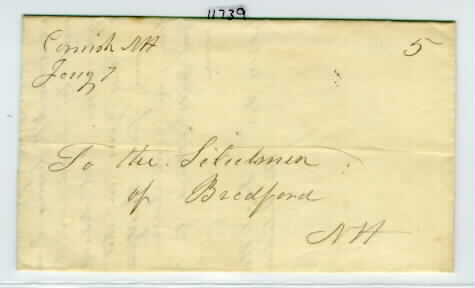 11739
Cornish NH
Jany 7
5
To the Selectmen
of Bradford
NH